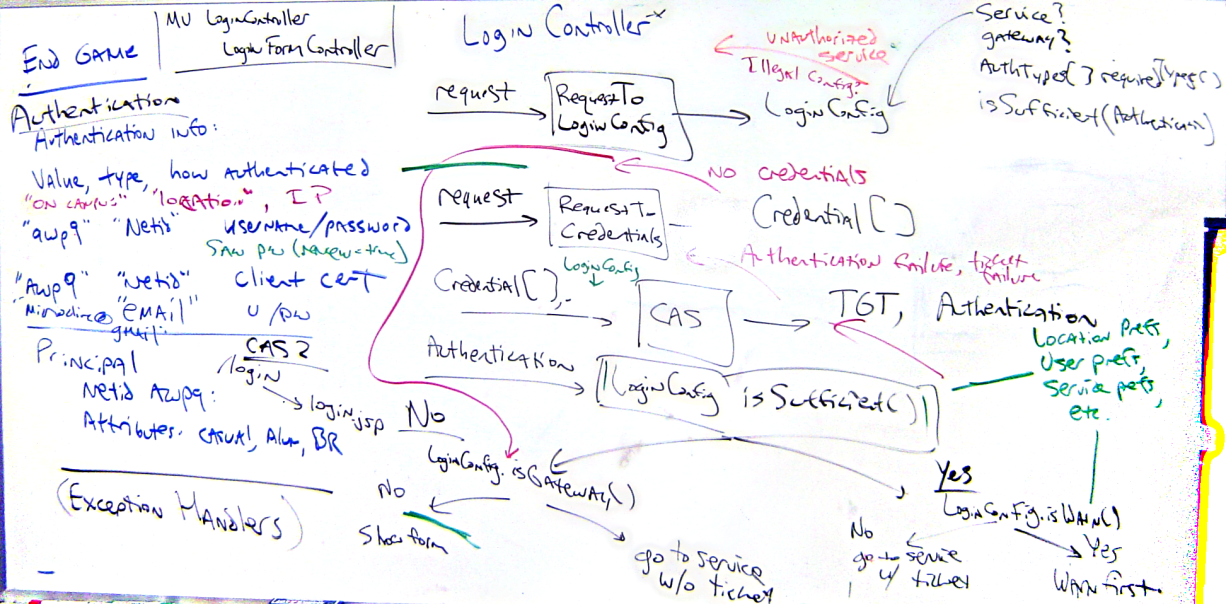 END GAME
MV LoginController
LoginFormController
Authentication
Authentication info:
Value, type, how Authenticated
"ON CAMPUS" "location", IP
"awp9" "Netid" username/password
SAW PW (renew=true)
"Awp9" "Netid" Client cert
"EMAIL" U/pw
gmail:
Principal
Netid Awp9:
Attributes: CASUAL, Alum, BR
CAS2
/login
login.jsp
(Exception Handlers)
Login Controller
request
RequestTo
LoginConfig
LoginConfig
UNAuthorized
service
Illegal Config?
Service?
gateway?
AuthTypes[] requiredTypes()
isSufficient(Authentication)
NO Credentials
request
RequestTo
Credentials
Credential[]
Authentication failure, ticket
failure
LoginConfig
Credential[],
CAS
TGT, Authentication
Authentication
LoginConfig isSufficient()
Location Prefs,
User prefs,
Service prefs,
etc.
No
LoginConfig.isGateway()
No
Show form
go to service
w/o ticket
Yes
LoginConfig.isWarn()
No
go to service
w/ ticket
Yes
WARN first.